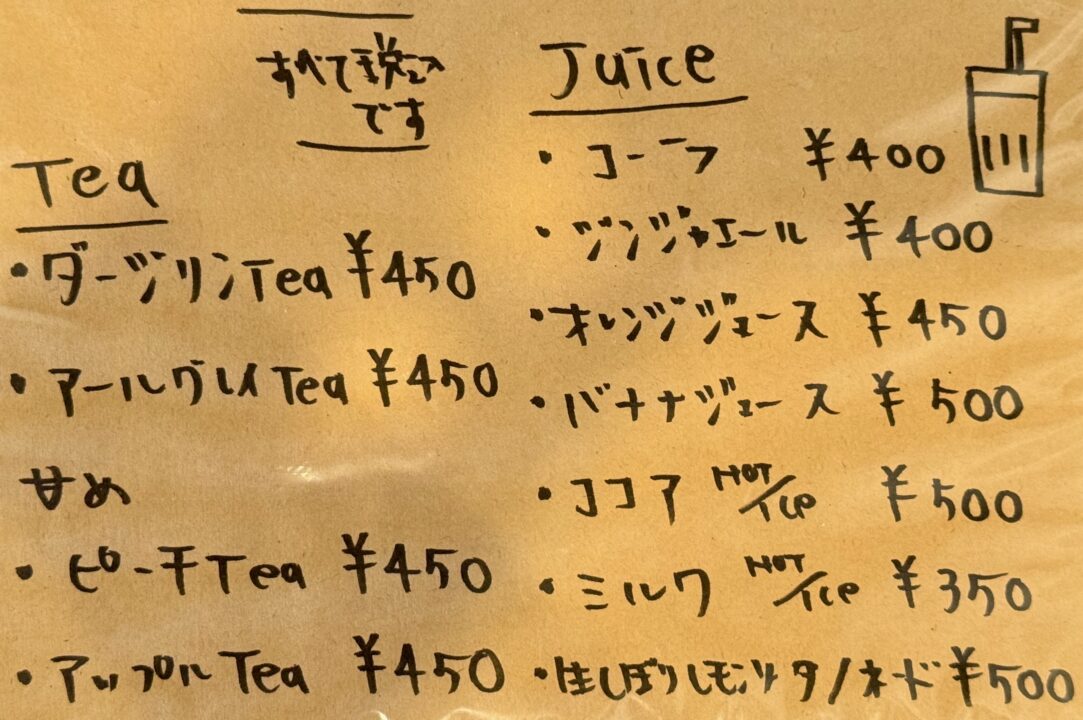 すべて税込
です
Tea
・ダージリンTea ¥450
・アールグレイTea ¥450
甘め
・ピーチTea ¥450
・アップルTea ¥450
Juice
・コーラ ¥400
・ジンジャエール ¥400
・オレンジジュース ¥450
・バナナジュース ¥500
・ココア HOT/Ice ¥500
・ミルク HOT/Ice ¥350
・生しぼりレモンソーダ/ネード ¥500